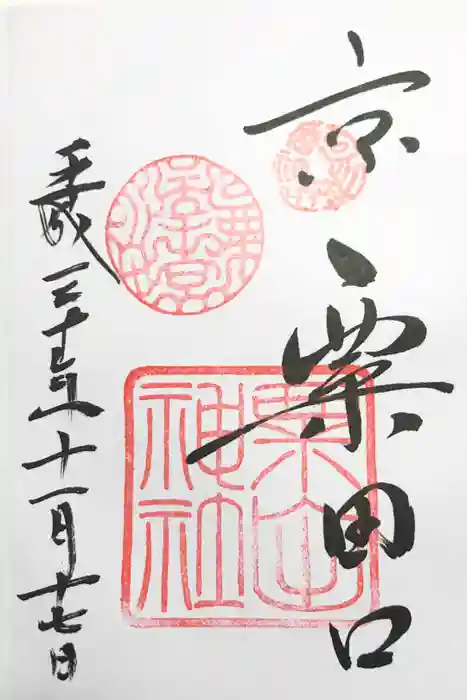 京 粟田口
粟田
神社
平成三十年十一月十七日